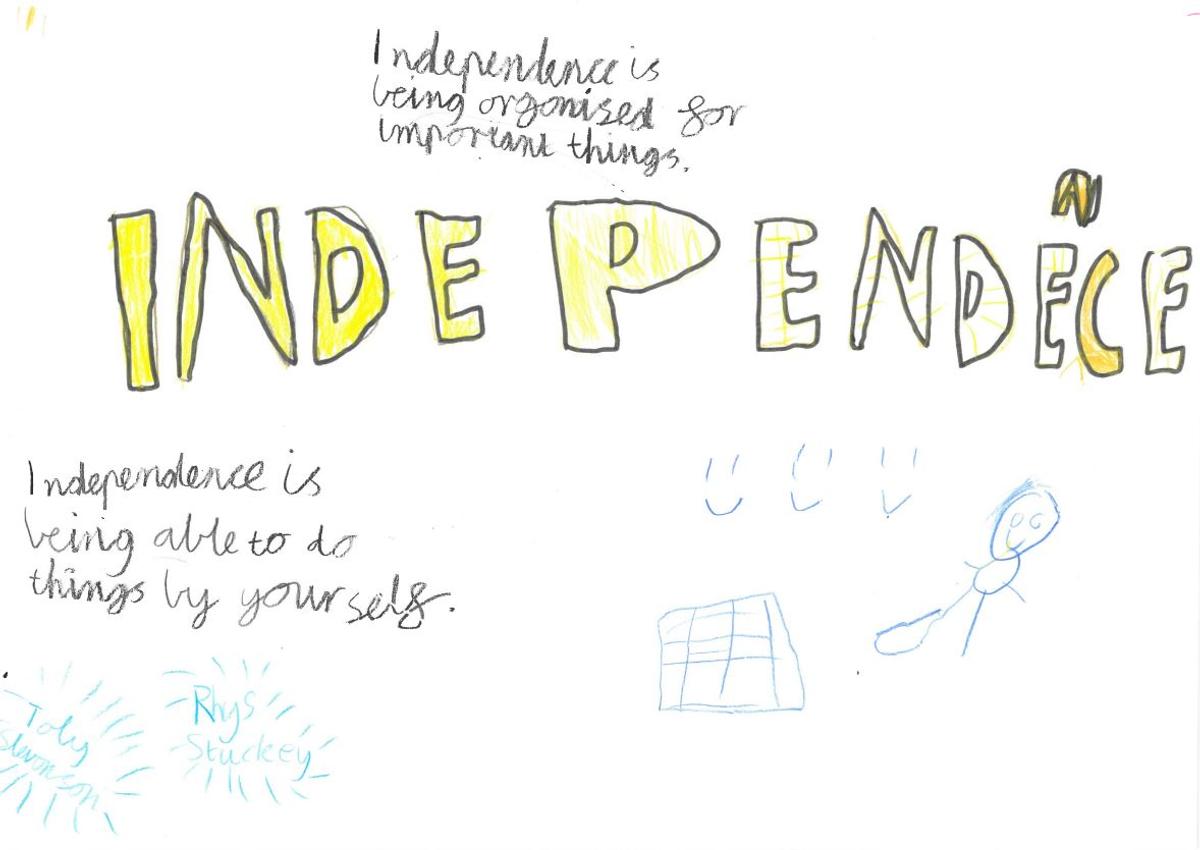 Independence is
being organised for
important things.
INDEPENDENCE
Independence is
being able to do
things by yourself.
Toby
Rhys
Stuckey